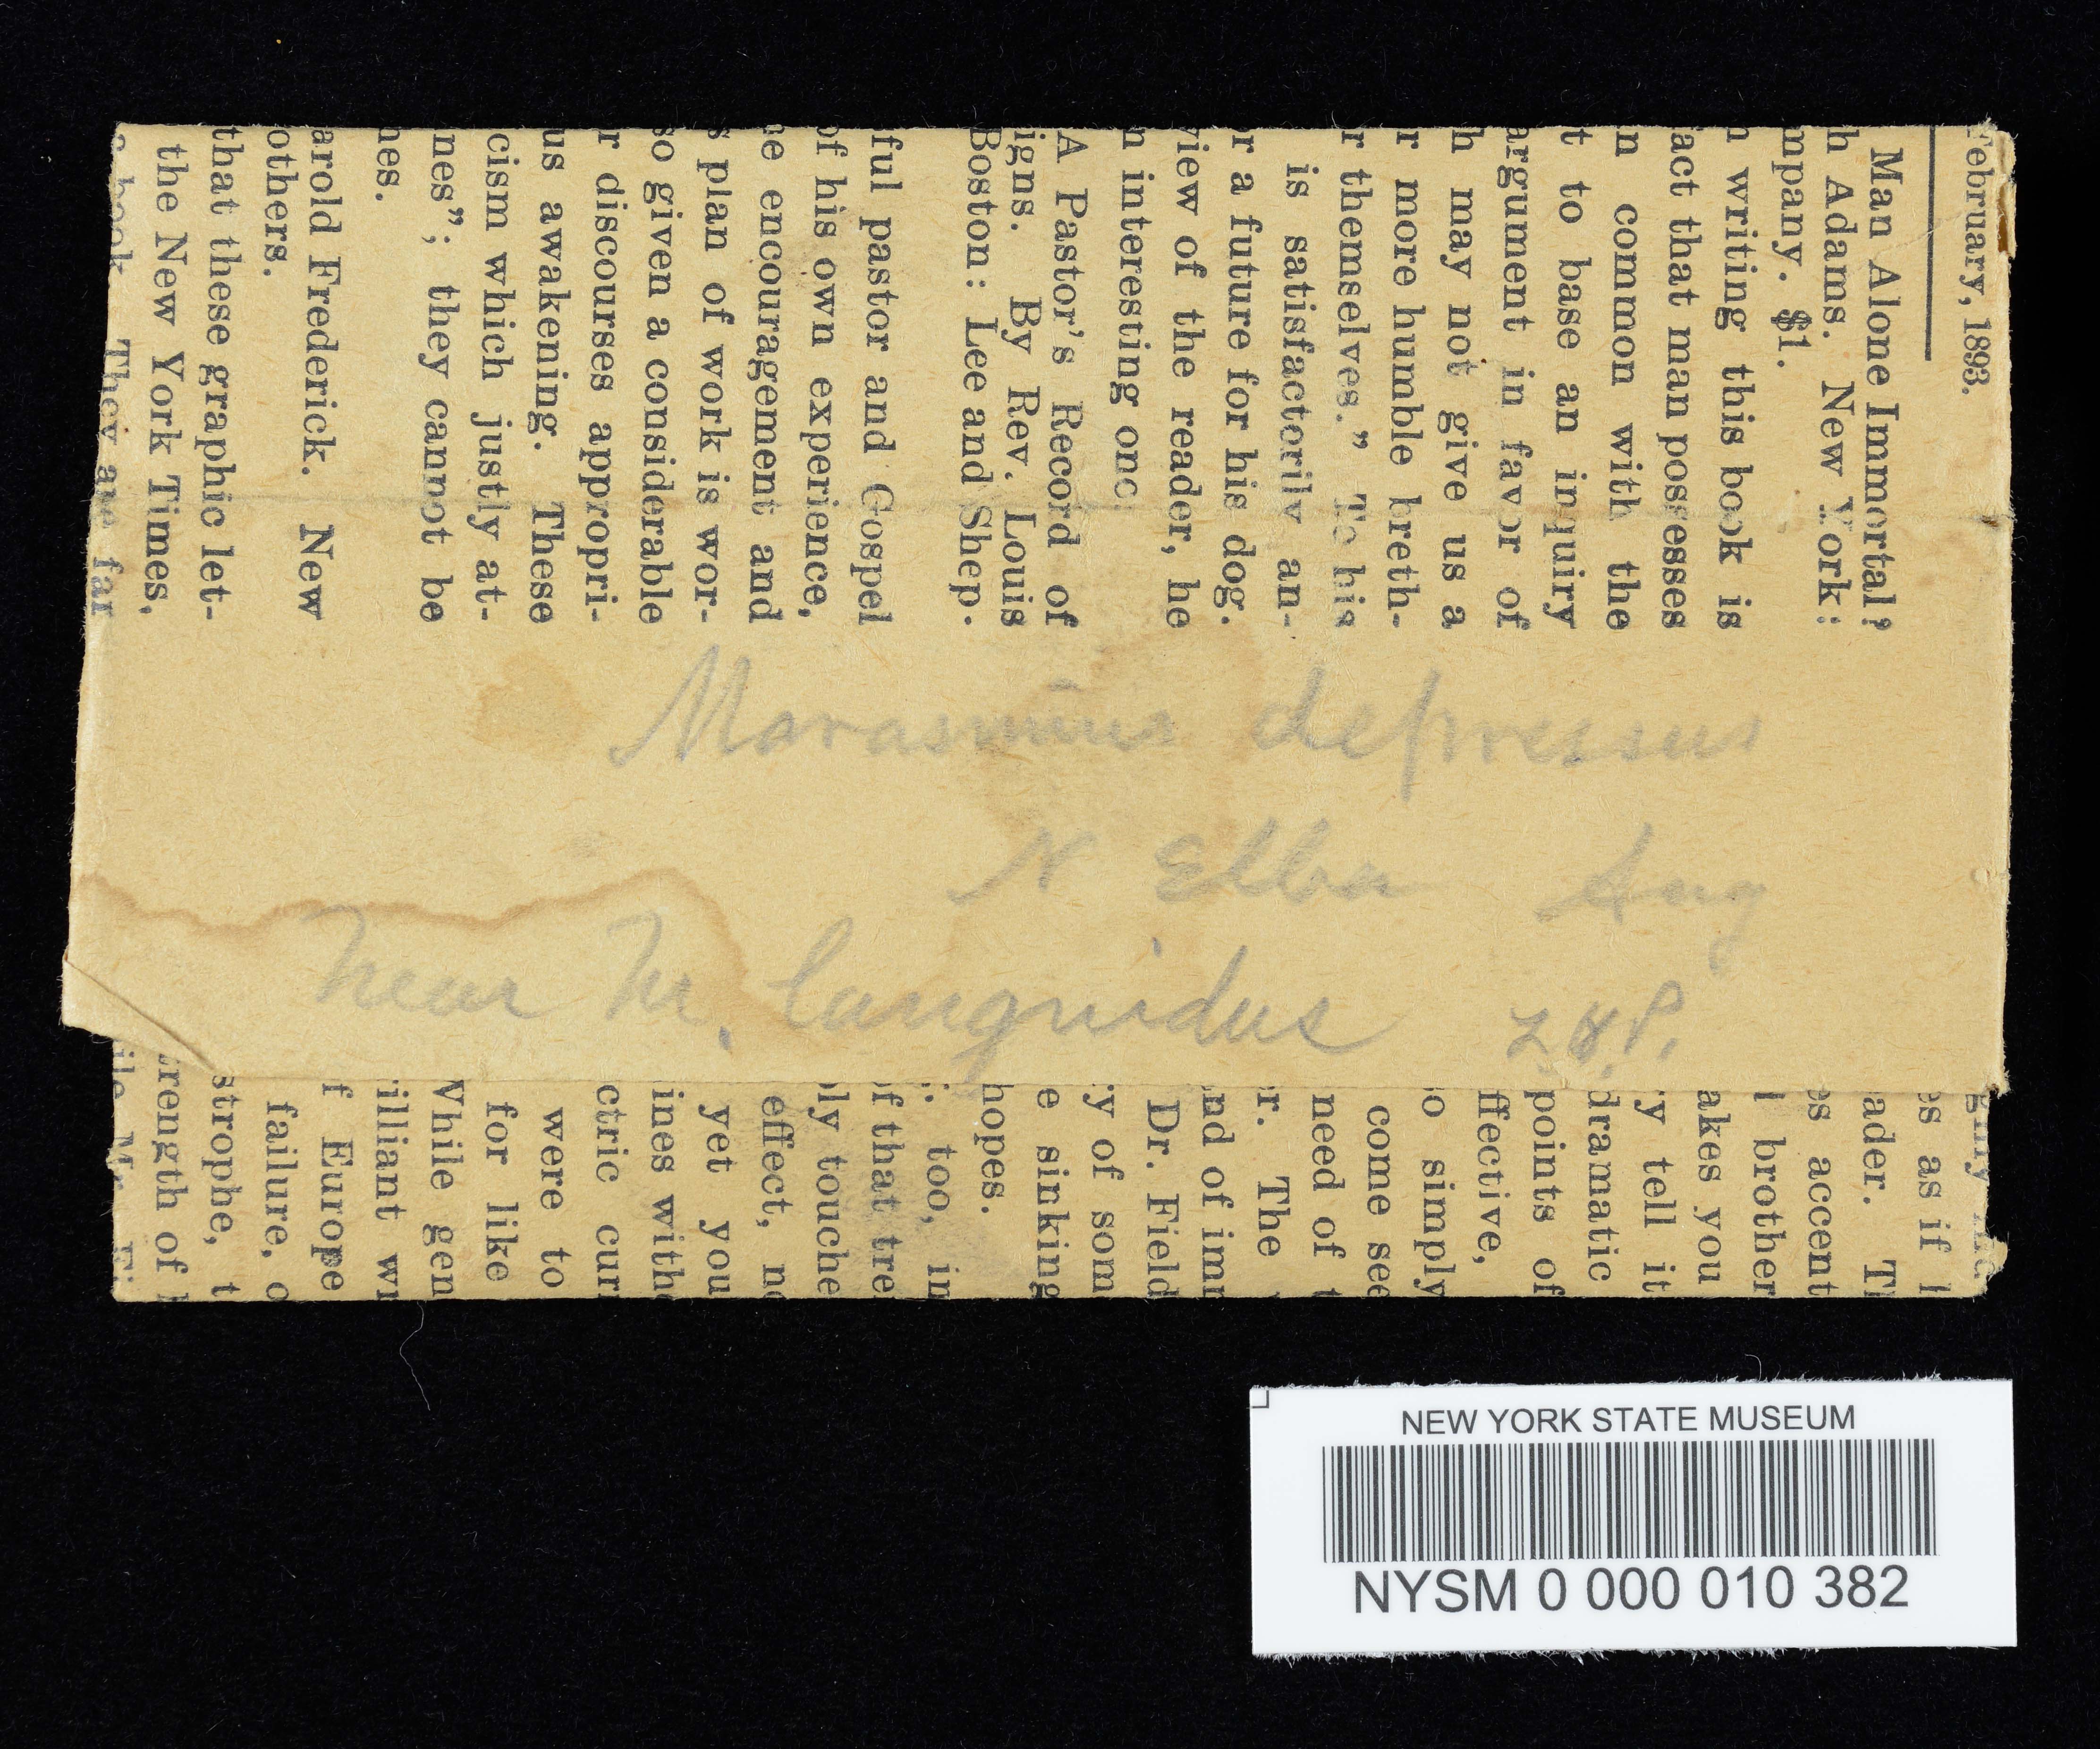 February, 1893.
Man Alone Immortal?
h Adams. New York:
mpany. $1.
n writing this book is
act that man possesses
n common with the
t to base an inquiry
argument in favor of
h may not give us a
r more humble breth-
r themselves.” To his
is satisfactorily an-
r a future for his dog.
view of the reader, he
n interesting one
A Pastor's Record of
igns. By Rev. Louis
Boston: Lee and Shep.
ful pastor and Gospel
of his own experience,
ne encouragement and
s plan of work is wor-
so given a considerable
r discourses appropri-
us awakening. These
cism which justly at-
nes”; they cannot be
nes.
arold Frederick. New
others.
that these graphic let-
the New York Times,
book They are far
Marasmius depressus
N Elba Aug
Near M. languidus L.H.P.
es as if l
ader. T
es accent
l brother
akes you
ry tell it
dramatic
points of
ffective,
so simply
come see
need of t
r. The
and of imm
Dr. Field
ry of som
e sinking
hopes.
; too, in
of that tre
ply touche
effect, no
yet you
ines with
ctric cur
were to
for like
While gen
rilliant wr
f Europe
failure, o
strophe, t
trength of
NEW YORK STATE MUSEUM
NYSM 0 000 010 382